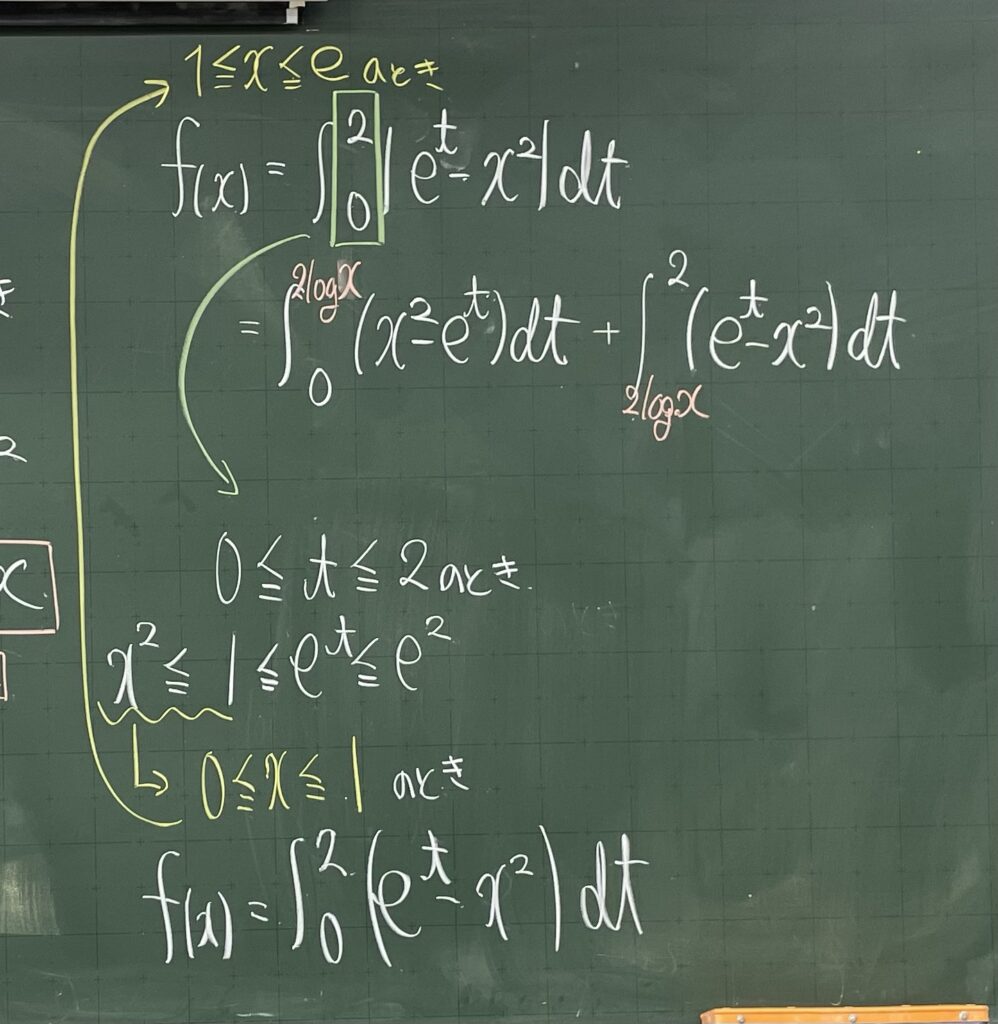 1≦x≦e のとき
f(x) = ∫₀² |eᵗ - x²| dt
= ∫₀^{2logx} (x² - eᵗ) dt + ∫_{2logx}² (eᵗ - x²) dt
0 ≦ t ≦ 2 のとき.
x² ≦ 1 ≦ eᵗ ≦ e²
0 ≦ x ≦ 1 のとき
f(x) = ∫₀² (eᵗ - x²) dt
2
x.